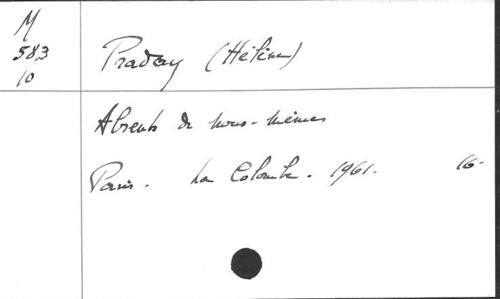 M
583
10
Praday (Hélène)
Absents de nous-mêmes
Paris. La Colombe. 1961. 16-